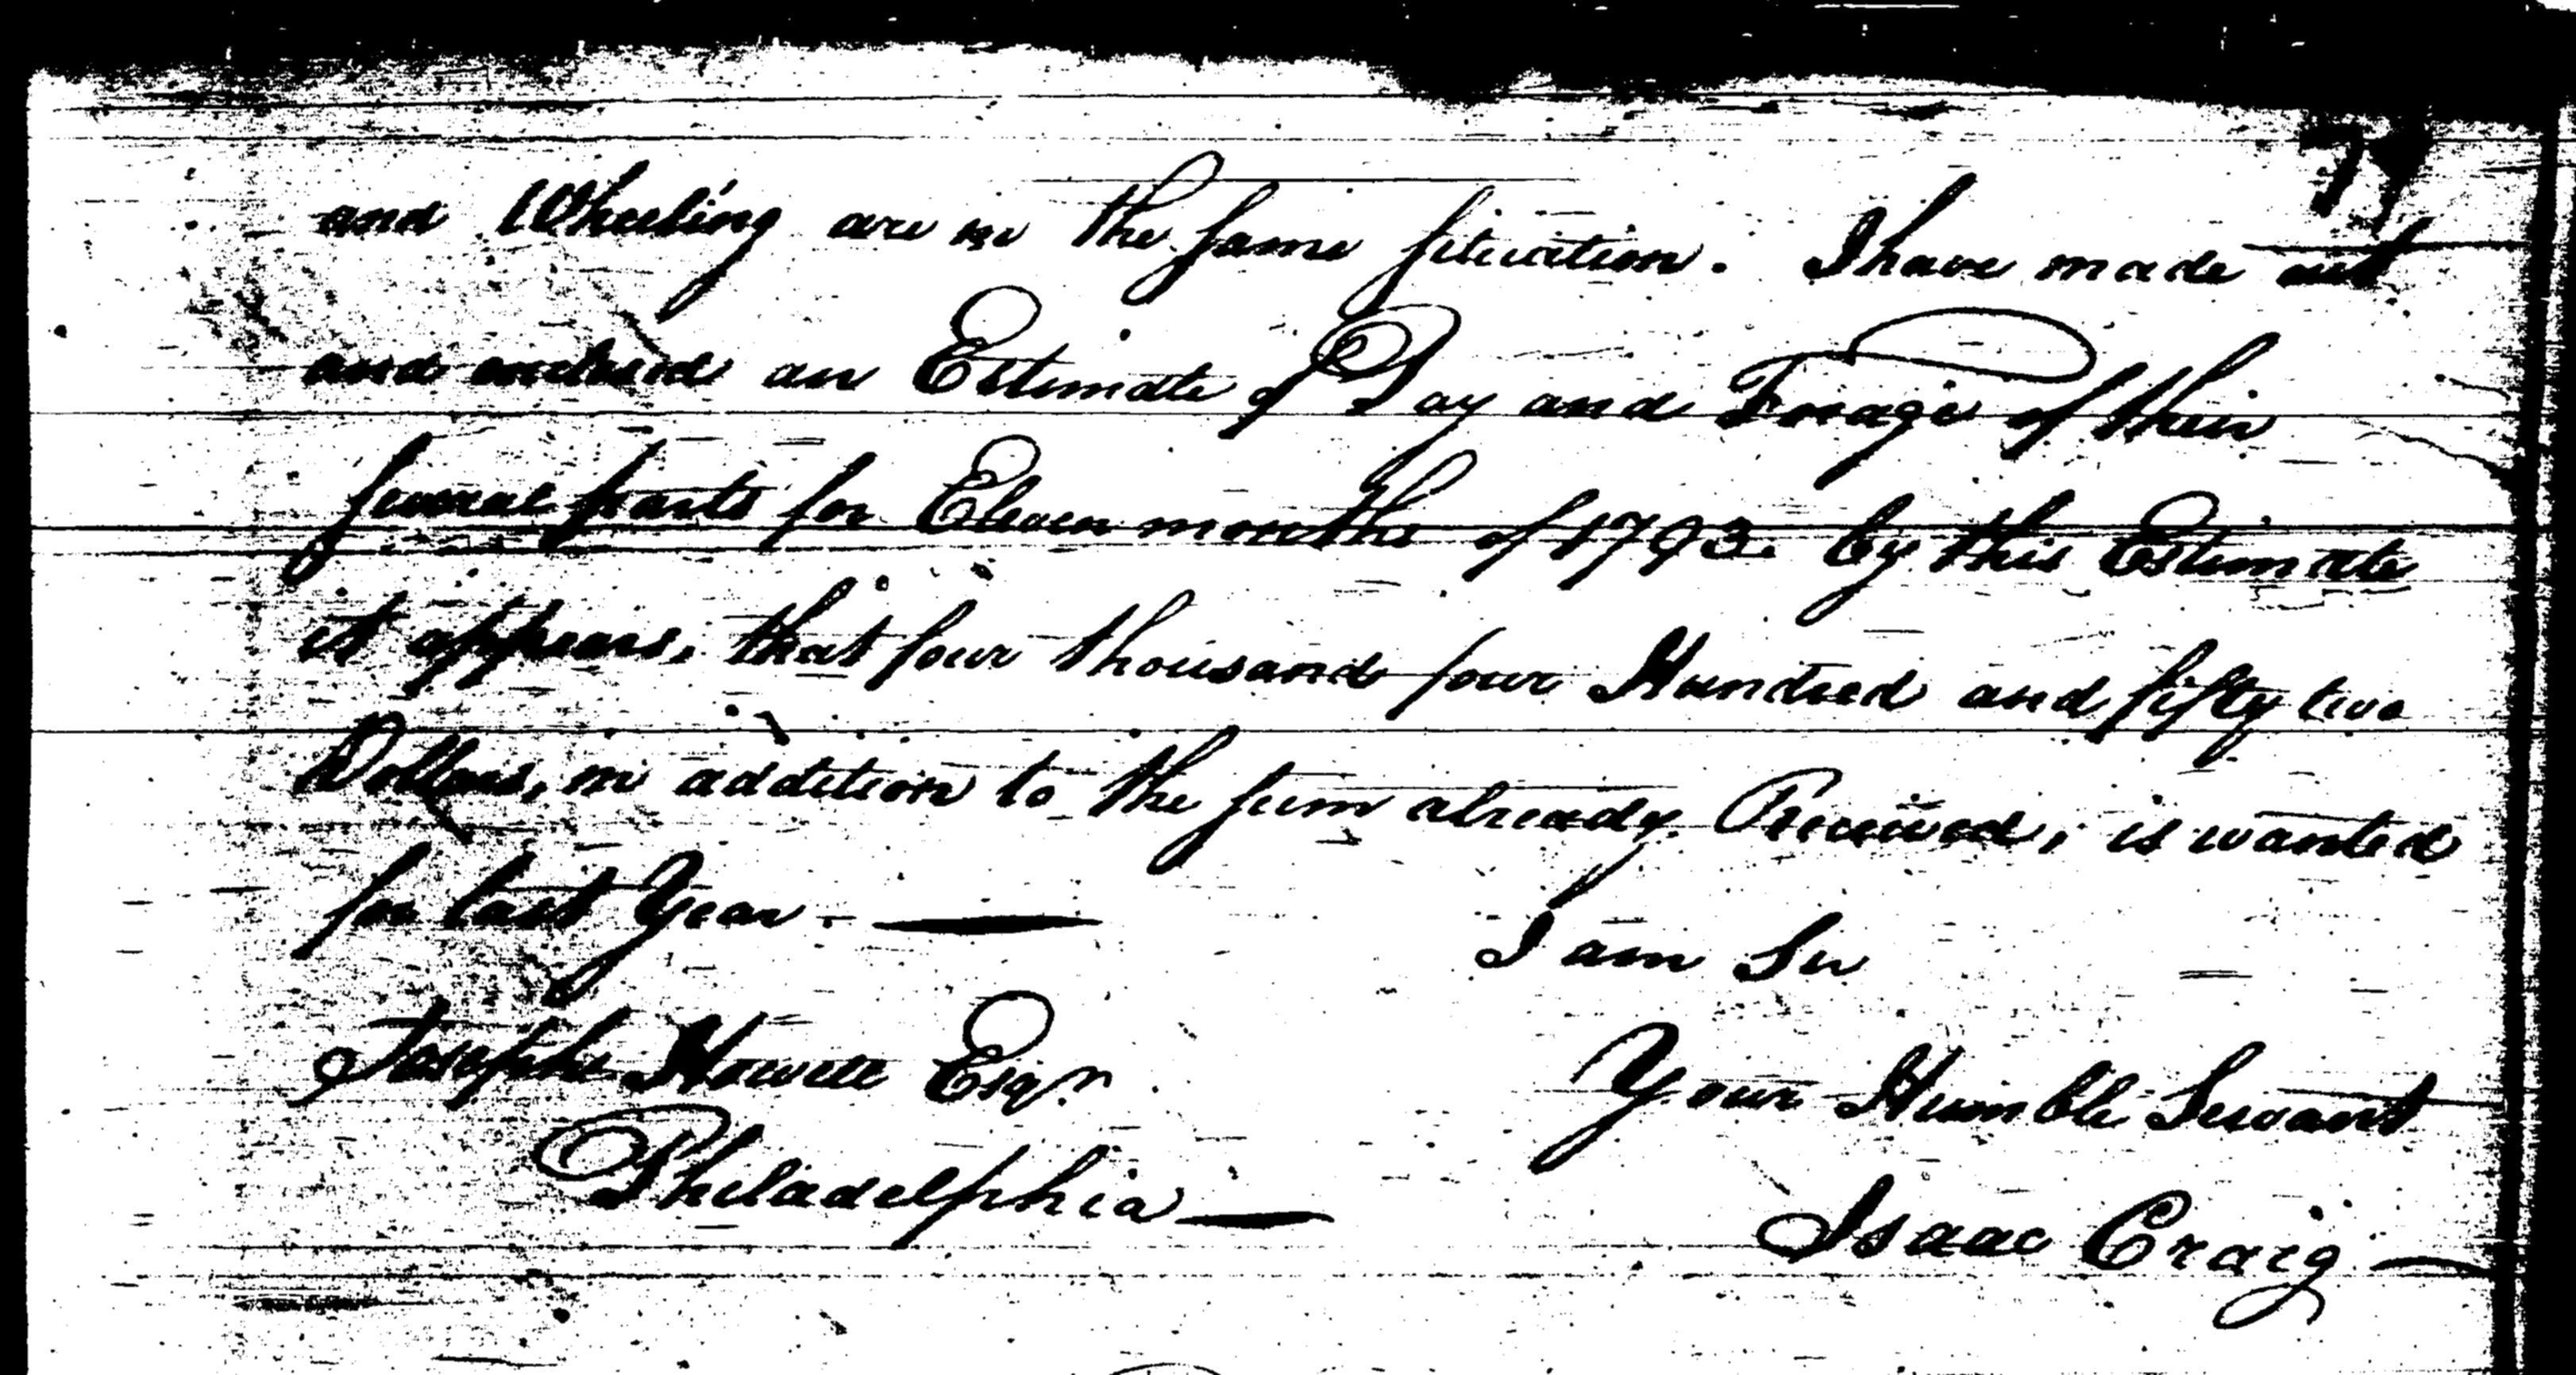 and Wheeling are in the same situation. I have made out
and enclosed an Estimate of Pay and Forage of their
several parts for Eleven months of 1793. by this Estimate
it appears, that four thousand four Hundred and fifty two
Dollars, in addition to the sum already Received, is wanted
for last Year.
I am Sir
Joseph Howell Esqr.
Your Humble Servant
Philadelphia
Isaac Craig